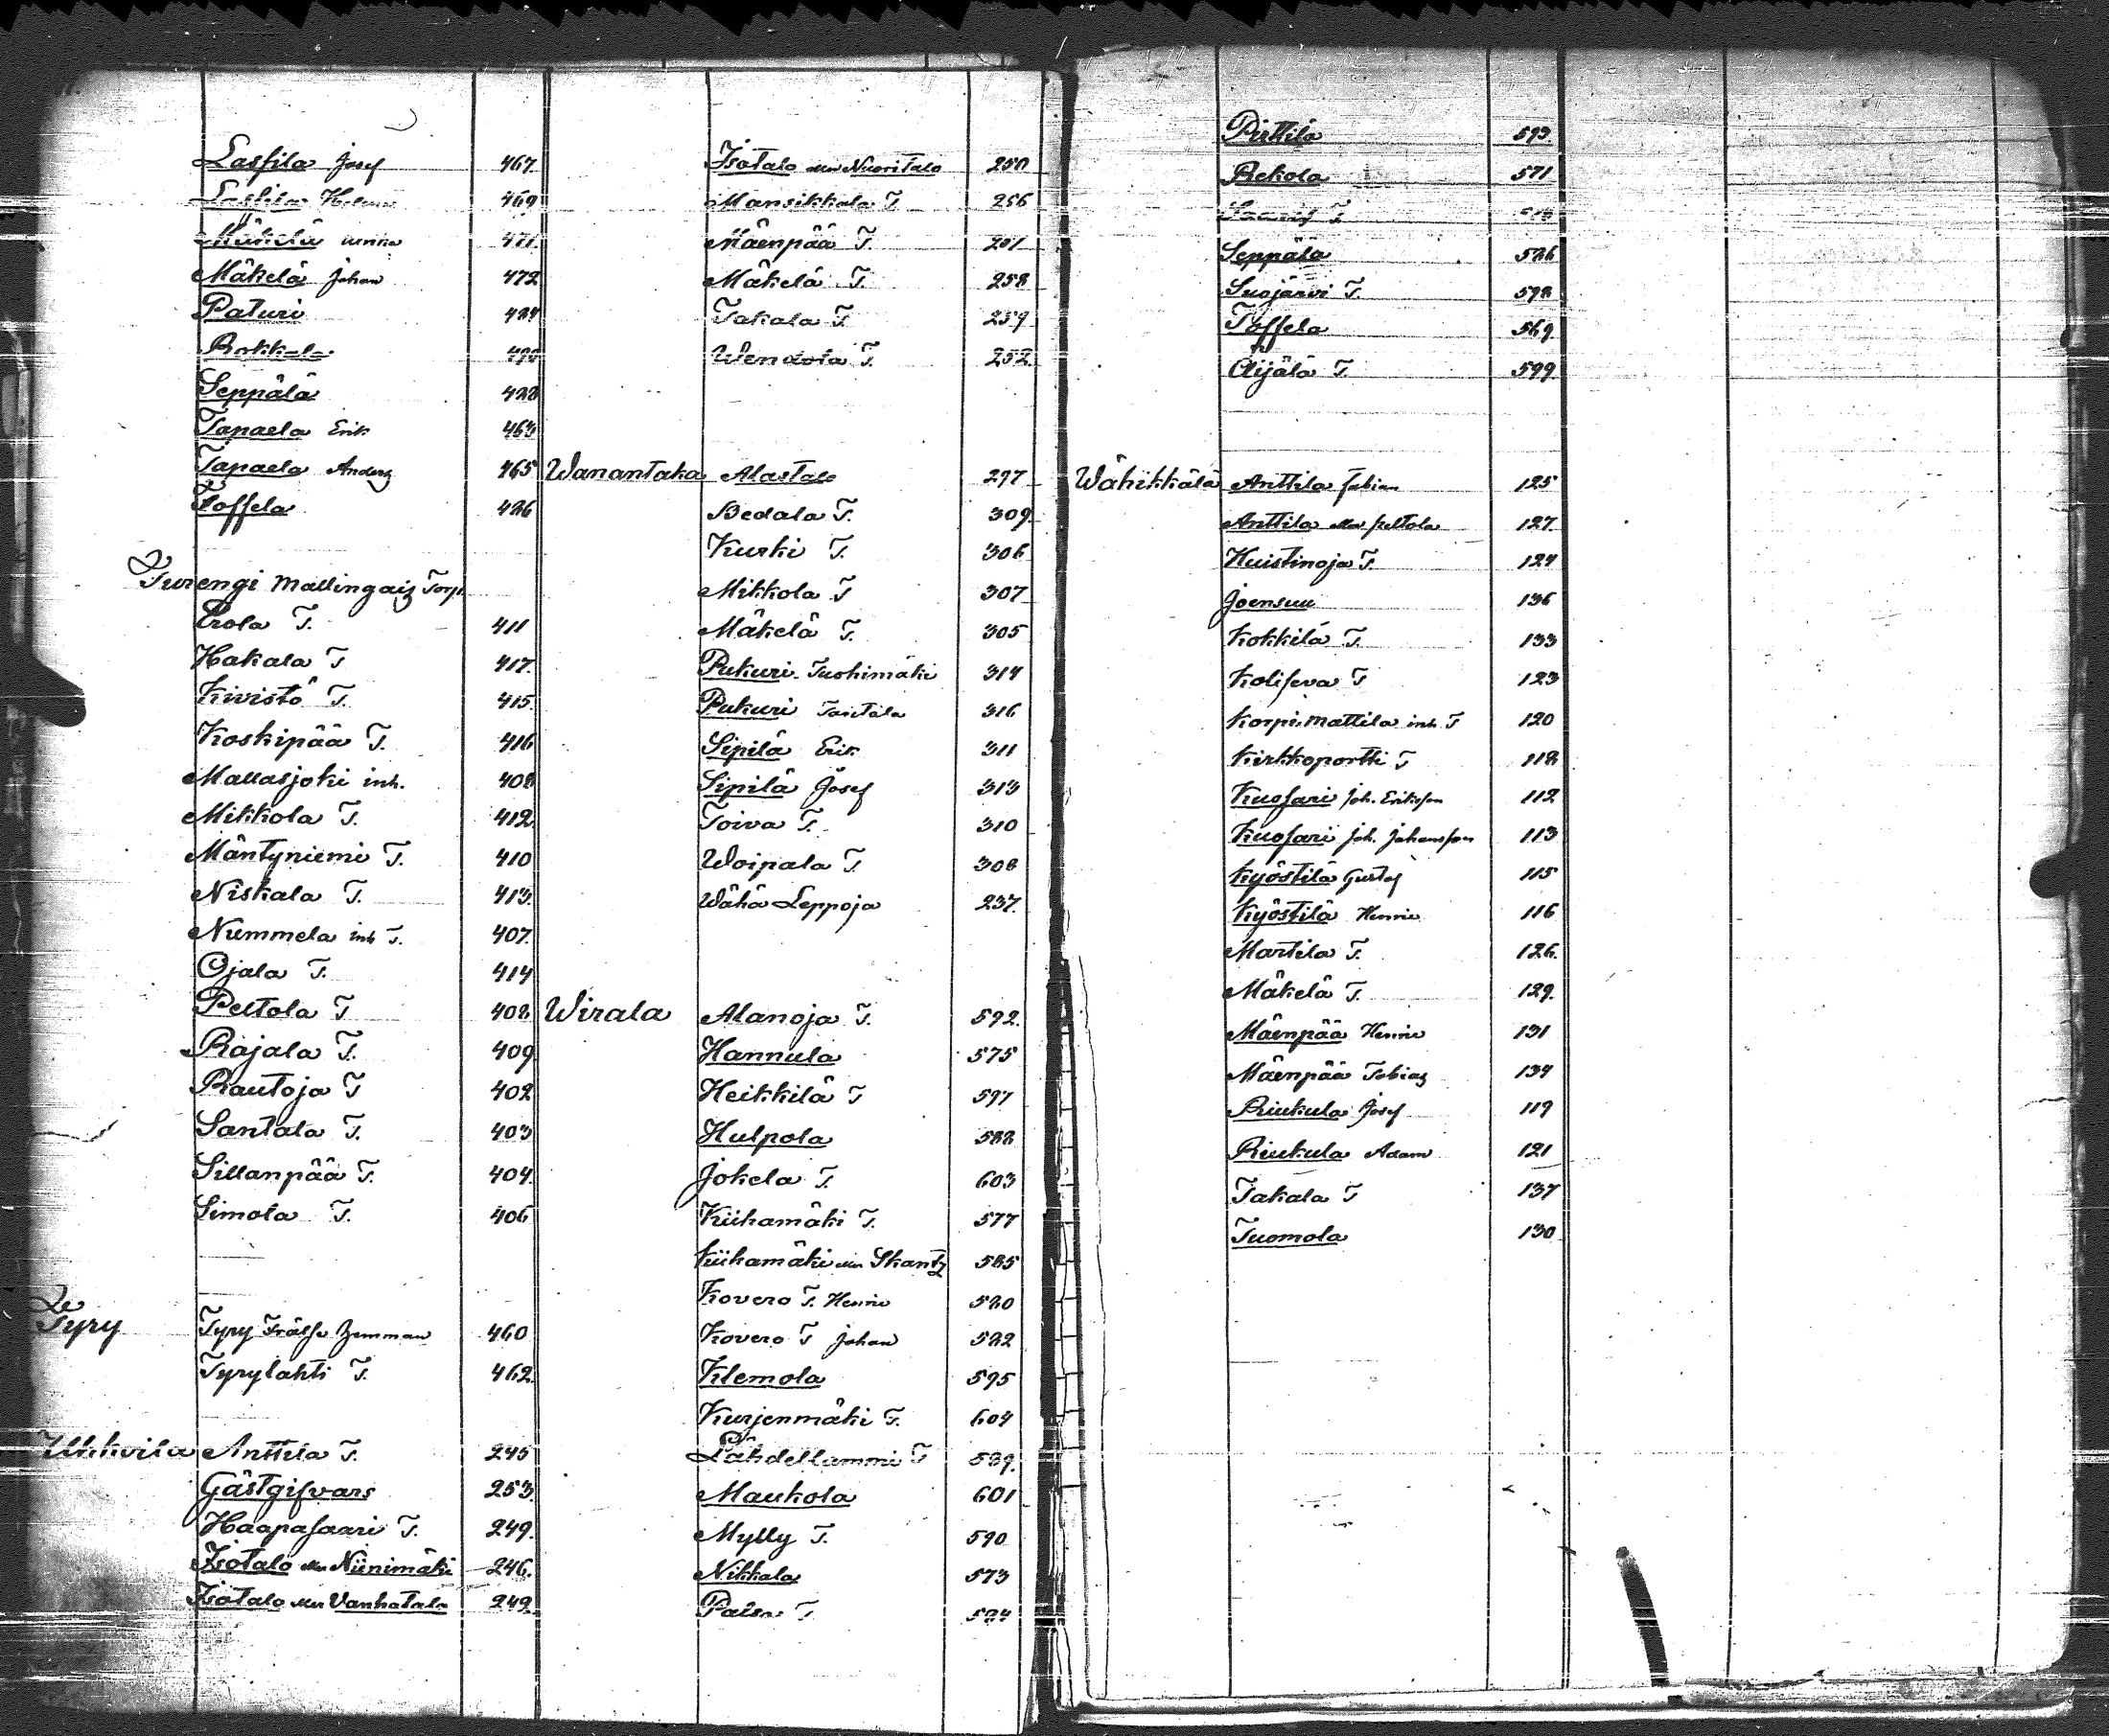 Lassila Josef 467.
Lassila Helena 469
Mäkelä 471.
Mäkelä Johan 472
Paturi 424
Rokkala
Seppälä 428
Tapaela Erik 463
Tapaela Anders 465
Toffela 426
Turengi Mallingais Torp.
Erola T. 411
Hakala T 417.
Kivistö T. 415.
Koskipää T. 416
Mallasjoki inh. 408
Mikkola T. 412
Mäntyniemi T. 410
Niskala T. 413.
Nummela inh T. 407.
Ojala T. 414
Peltola T 408
Rajala T. 409
Rautoja T 402
Santala T. 403
Sillanpää T. 404.
Simola T. 406
Tyry Tyry Frälse 460
Tyrylahti T. 462.
Uhkoila Anttila T. 245
Gästgifvars 253.
Haapasaari T. 249.
Isotalo eller Niinimäki 246.
Isotalo eller Vanhatalo 242.
Isotalo eller Nuoritalo 250
Mansikkala T 256
Mäenpää T. 261
Mäkelä T. 258
Takala T 259
Wendola T. 252.
Wanantaka Alastalo 297
Bedala T. 309.
Kurki T. 306
Mikkola T 307
Mäkelä T. 305
Pukuri Tuohimäki 314
Pukuri Tantala 316
Sipilä Erik 311
Sipilä Josef 313
Toiva T. 310
Woipala T. 308
Wähä Leppoja 237.
Wirala Alanoja T. 592.
Hannula 575
Heikkilä T 597
Hulpola 588
Jokela T. 603
Kiihamäki T. 577
Kiihamäki eller Skantz 585
Kovero T. Henric 580
Kovero T Johan 582
Klemola 595
Kurjenmäki T. 604
Lähdellammi T 589.
Maukola 601
Mylly T. 590
Nikkala 573
T 584
Pirttilä 593.
Rekola 571
T
Seppälä 586
Suojärvi T. 598
Toffela 569.
Äijälä T. 599
Wähikkälä Anttila Fabian 125
Anttila eller Peltola 127.
Huistinoja T. 124
Joensuu 136
Kokkila T. 133
Koliseva T 123
Korpi. Mattila inh. T 120
Kirkkoportti T 118
Kuosari Joh. Eriksson 112
Kuosari Joh. Johansson 113
Kyöstilä Gustaf 115
Kyöstilä Henric 116
Martila T. 126.
Mäkelä T. 129.
Mäenpää Henric 131
Mäenpää Tobias 134
Riukula Josef 119
Riukula Adam 121
Takala T 137
Tuomola 130